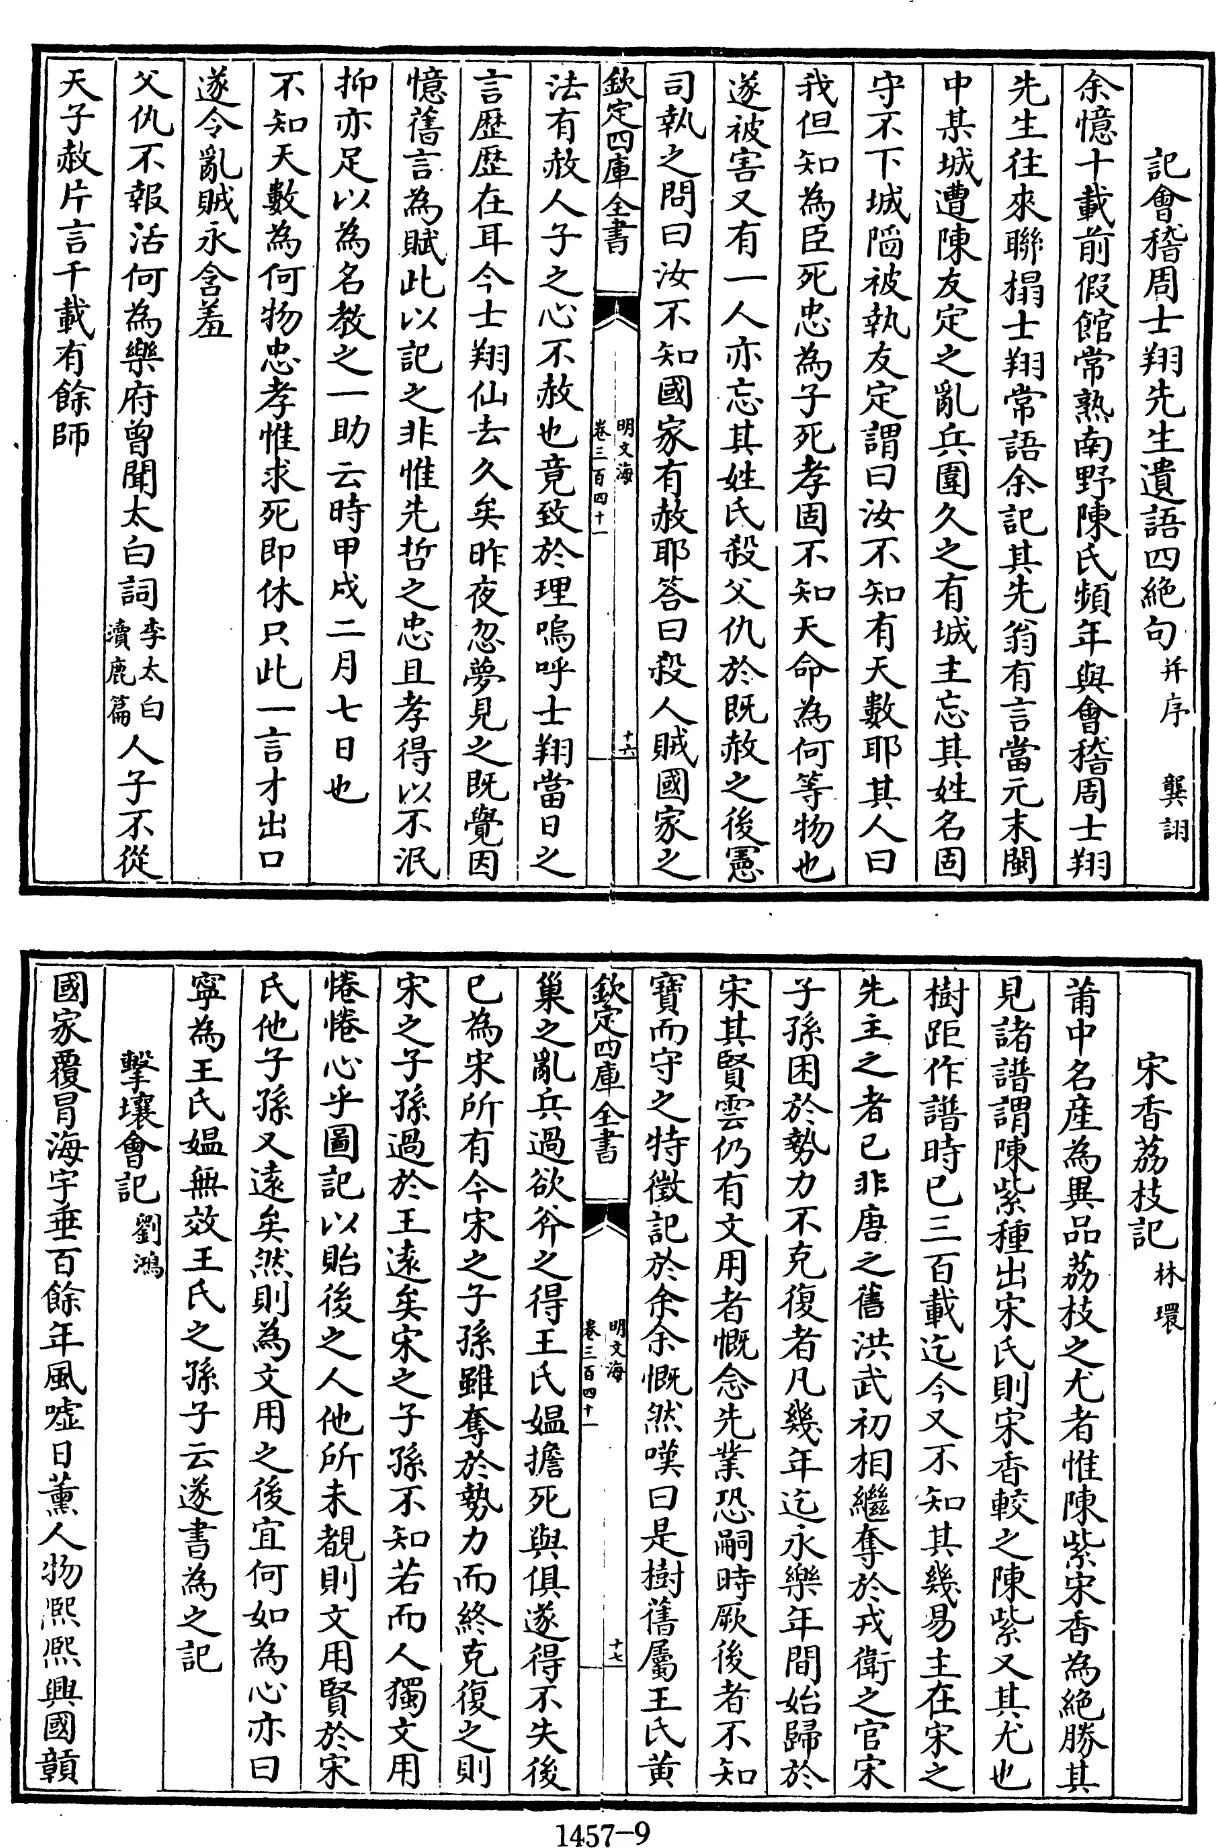 記會稽周士翔先生遺語四絶句 并序 龔詡
余憶十載前假館常熟南野陳氏頻年與會稽周士翔
先生往來聯榻士翔常語余記其先翁有言當元末閩
中某城遭陳友定之亂兵圍久之有城主忘其姓名固
守不下城陷被執友定謂曰汝不知有天數耶其人曰
我但知為臣死忠為子死孝固不知天命為何等物也
遂被害又有一人亦忘其姓氏殺父仇於既赦之後憲
司執之問曰汝不知國家有赦耶答曰殺人賊國家之
欽定四庫全書
明文海
卷三百四十一
十六
法有赦人子之心不赦也竟致於理嗚呼士翔當日之
言歷歷在耳今士翔仙去久矣昨夜忽夢見之既覺因
憶舊言為賦此以記之非惟先哲之忠且孝得以不泯
抑亦足以為名教之一助云時甲戌二月七日也
不知天數為何物忠孝惟求死即休只此一言才出口
遂令亂賊永含羞
父仇不報活何為樂府曾聞太白詞李太白瀆鹿篇人子不從
天子赦片言千載有餘師
宋香荔枝記 林環
莆中名産為異品荔枝之尤者惟陳紫宋香為絶勝其
見諸譜謂陳紫種出宋氏則宋香較之陳紫又其尤也
樹距作譜時已三百載迄今又不知其幾易主在宋之
先主之者已非唐之舊洪武初相繼奪於戎衛之官宋
子孫困於勢力不克復者凡幾年迄永樂年間始歸於
宋其賢雲仍有文用者慨念先業恐嗣時厥後者不知
寶而守之特徵記於余余慨然嘆曰是樹舊屬王氏黄
欽定四庫全書
明文海
卷三百四十一
十七
巢之亂兵過欲斧之得王氏媼擔死與俱遂得不失後
已為宋所有今宋之子孫雖奪於勢力而終克復之則
宋之子孫過於王遠矣宋之子孫不知若而人獨文用
惓惓心乎圖記以貽後之人他所未覩則文用賢於宋
氏他子孫又遠矣然則為文用之後宜何如為心亦曰
寧為王氏媼無效王氏之孫子云遂書為之記
擊壤會記 劉鴻
國家覆冐海宇垂百餘年風噓日薰人物熈熈興國贑
1457-9